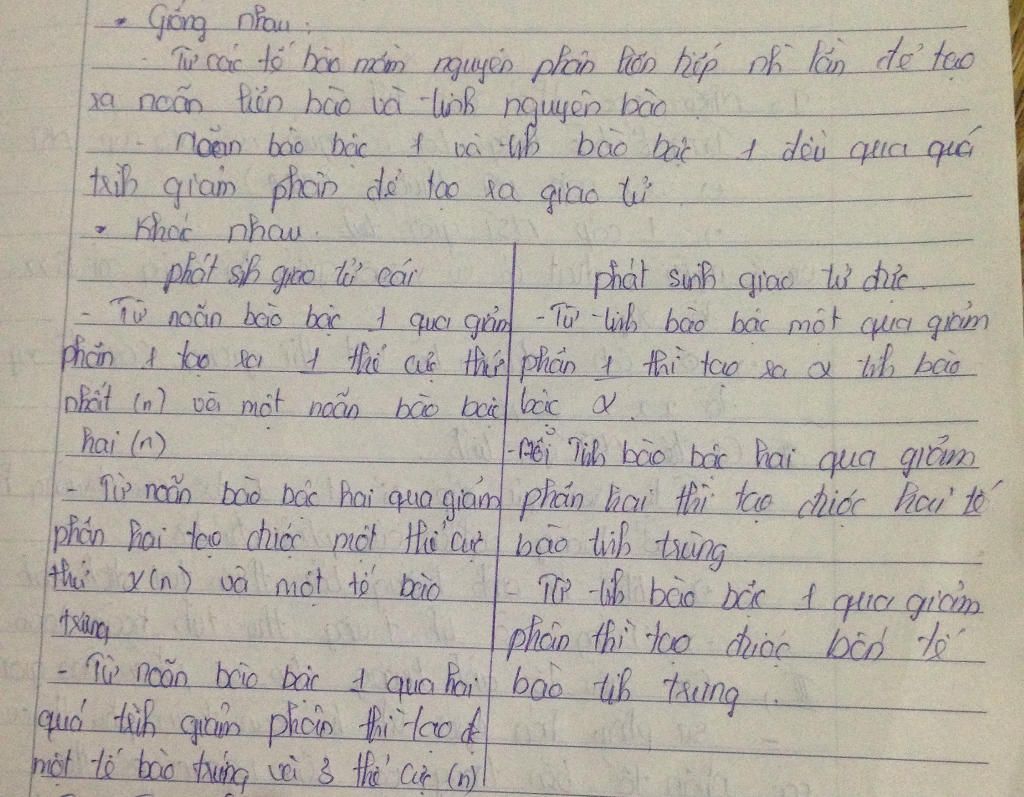 • Giống nhau:
- Từ các tế bào mầm nguyên phân liên tiếp nh lần để tạo
ra noãn tiên bào và tinh nguyên bào
- Noãn bào bậc 1 và tih bào bậc 1 đều qua quá
trih giảm phân để tạo ra giao tử
• Khác nhau.
phát sih giao tử cái
- Từ noãn bào bậc 1 qua giảm
phân 1 tạo ra 1 thể cực thứ
nhất (n) và một noãn bào bậc
hai (n)
- Từ noãn bào bậc hai qua giảm
phân hai tạo được một thể cực
thứ 2(n) và một tế bào
trứng
- Từ noãn bào bậc 1 qua hai
quá trih giảm phân thì tạo đc
một tế bào trứng và 3 thể cực (n)
phát sinh giao tử đực.
- Từ tinh bào bậc một qua giảm
phân 1 thì tạo ra 2 tih bào
bậc 2.
- Mỗi Tinh bào bậc hai qua giảm
phân hai thì tạo được hai tế
bào tinh trùng
Từ tih bào bậc 1 qua giảm
phân thì tạo được bốn tế
bào tih trùng.